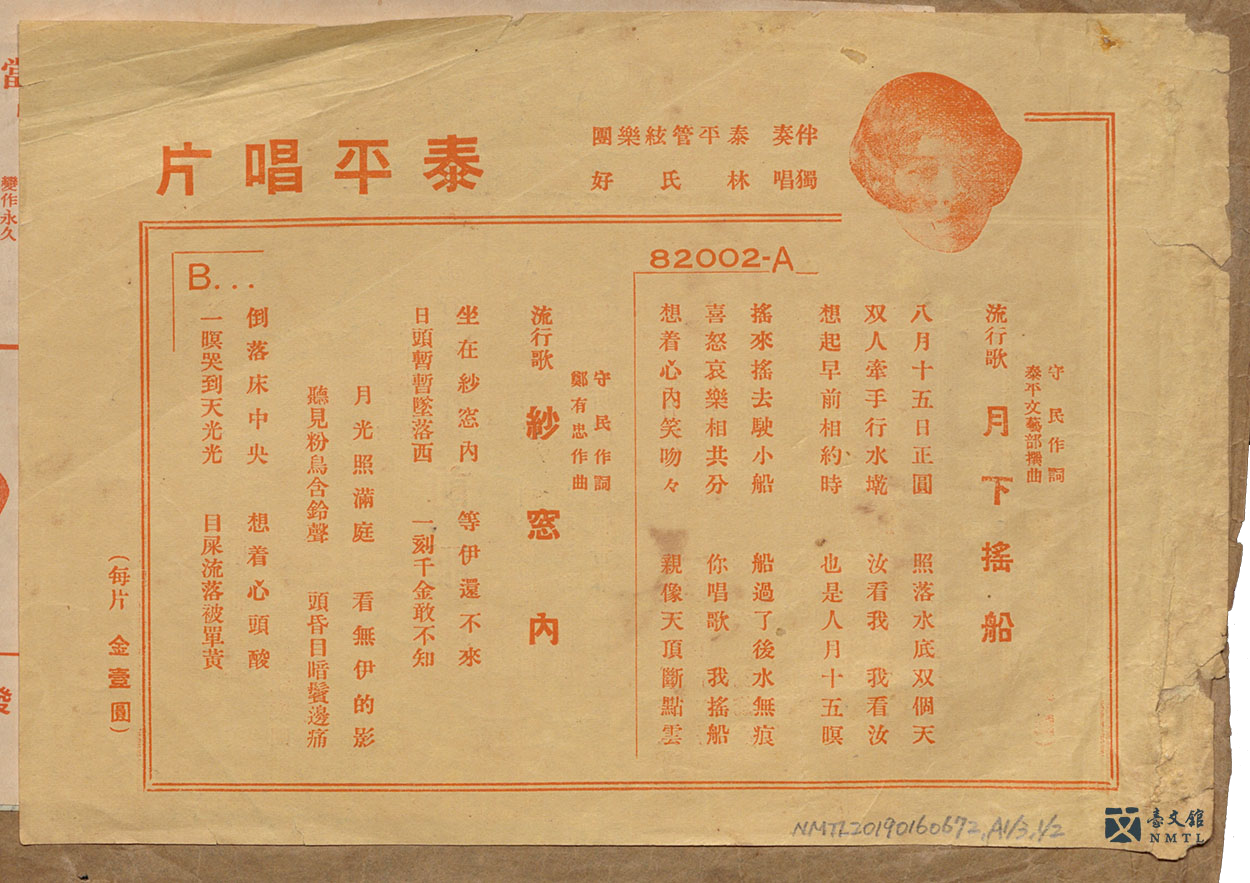 泰平唱片
伴奏 泰平管絃樂團
獨唱 林氏好
82002-A
守民作詞
泰平文藝部撰曲
流行歌 月下搖船
八月十五日正圓 照落水底双個天
双人牽手行水墘 汝看我 我看汝
想起早前相約時 也是人月十五暝
搖來搖去駛小船 船過了後水無痕
喜怒哀樂相共分 你唱歌 我搖船
想着心內笑吻々 親像天頂斷點雲
B...
守民作詞
鄭有忠作曲
流行歌 紗窓內
坐在紗窓內 等伊還不來
日頭暫暫墜落西 一刻千金敢不知
月光照滿庭 看無伊的影
聽見粉鳥含鈴聲 頭昏目暗鬢邊痛
倒落床中央 想着心頭酸
一暝哭到天光光 目屎流落被單黃
(每片 金壹圓)
變作永久
NMTL20190160672,A1/3,1/2
臺文館
NMTL